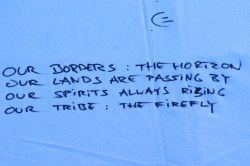 OUR BORDERS : THE HORIZON
OUR LANDS ARE PASSING BY
OUR SPIRITS ALWAYS RISING
OUR TRIBE : THE FIREFLY